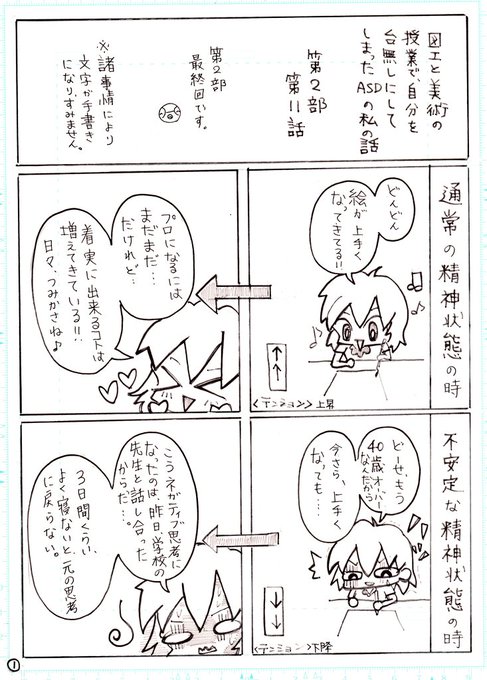 図工と美術の
授業で、自分を
台無しにして
しまったASDの私の話
第2部
第11話
第2部
最終回です。
※諸事情により
文字が手書き
になり、すみません。
通常の精神状態の時
どんどん
絵が上手く
なってきてる!!
<テンション>上昇
プロになるには
まだまだ…
だけれど…
着実に出来るコトは
増えてきている!!
日々、つみかさね♪
不安定な精神状態の時
どーせ、もう
40歳オーバー
なんだから
今さら、上手く
なっても…
<テンション>下降
こうネガティブ思考に
なったのは、昨日学校の
先生と話し合った
からだ…。
3日間くらい、
よく寝ないと、元の思考
に戻らない。
1